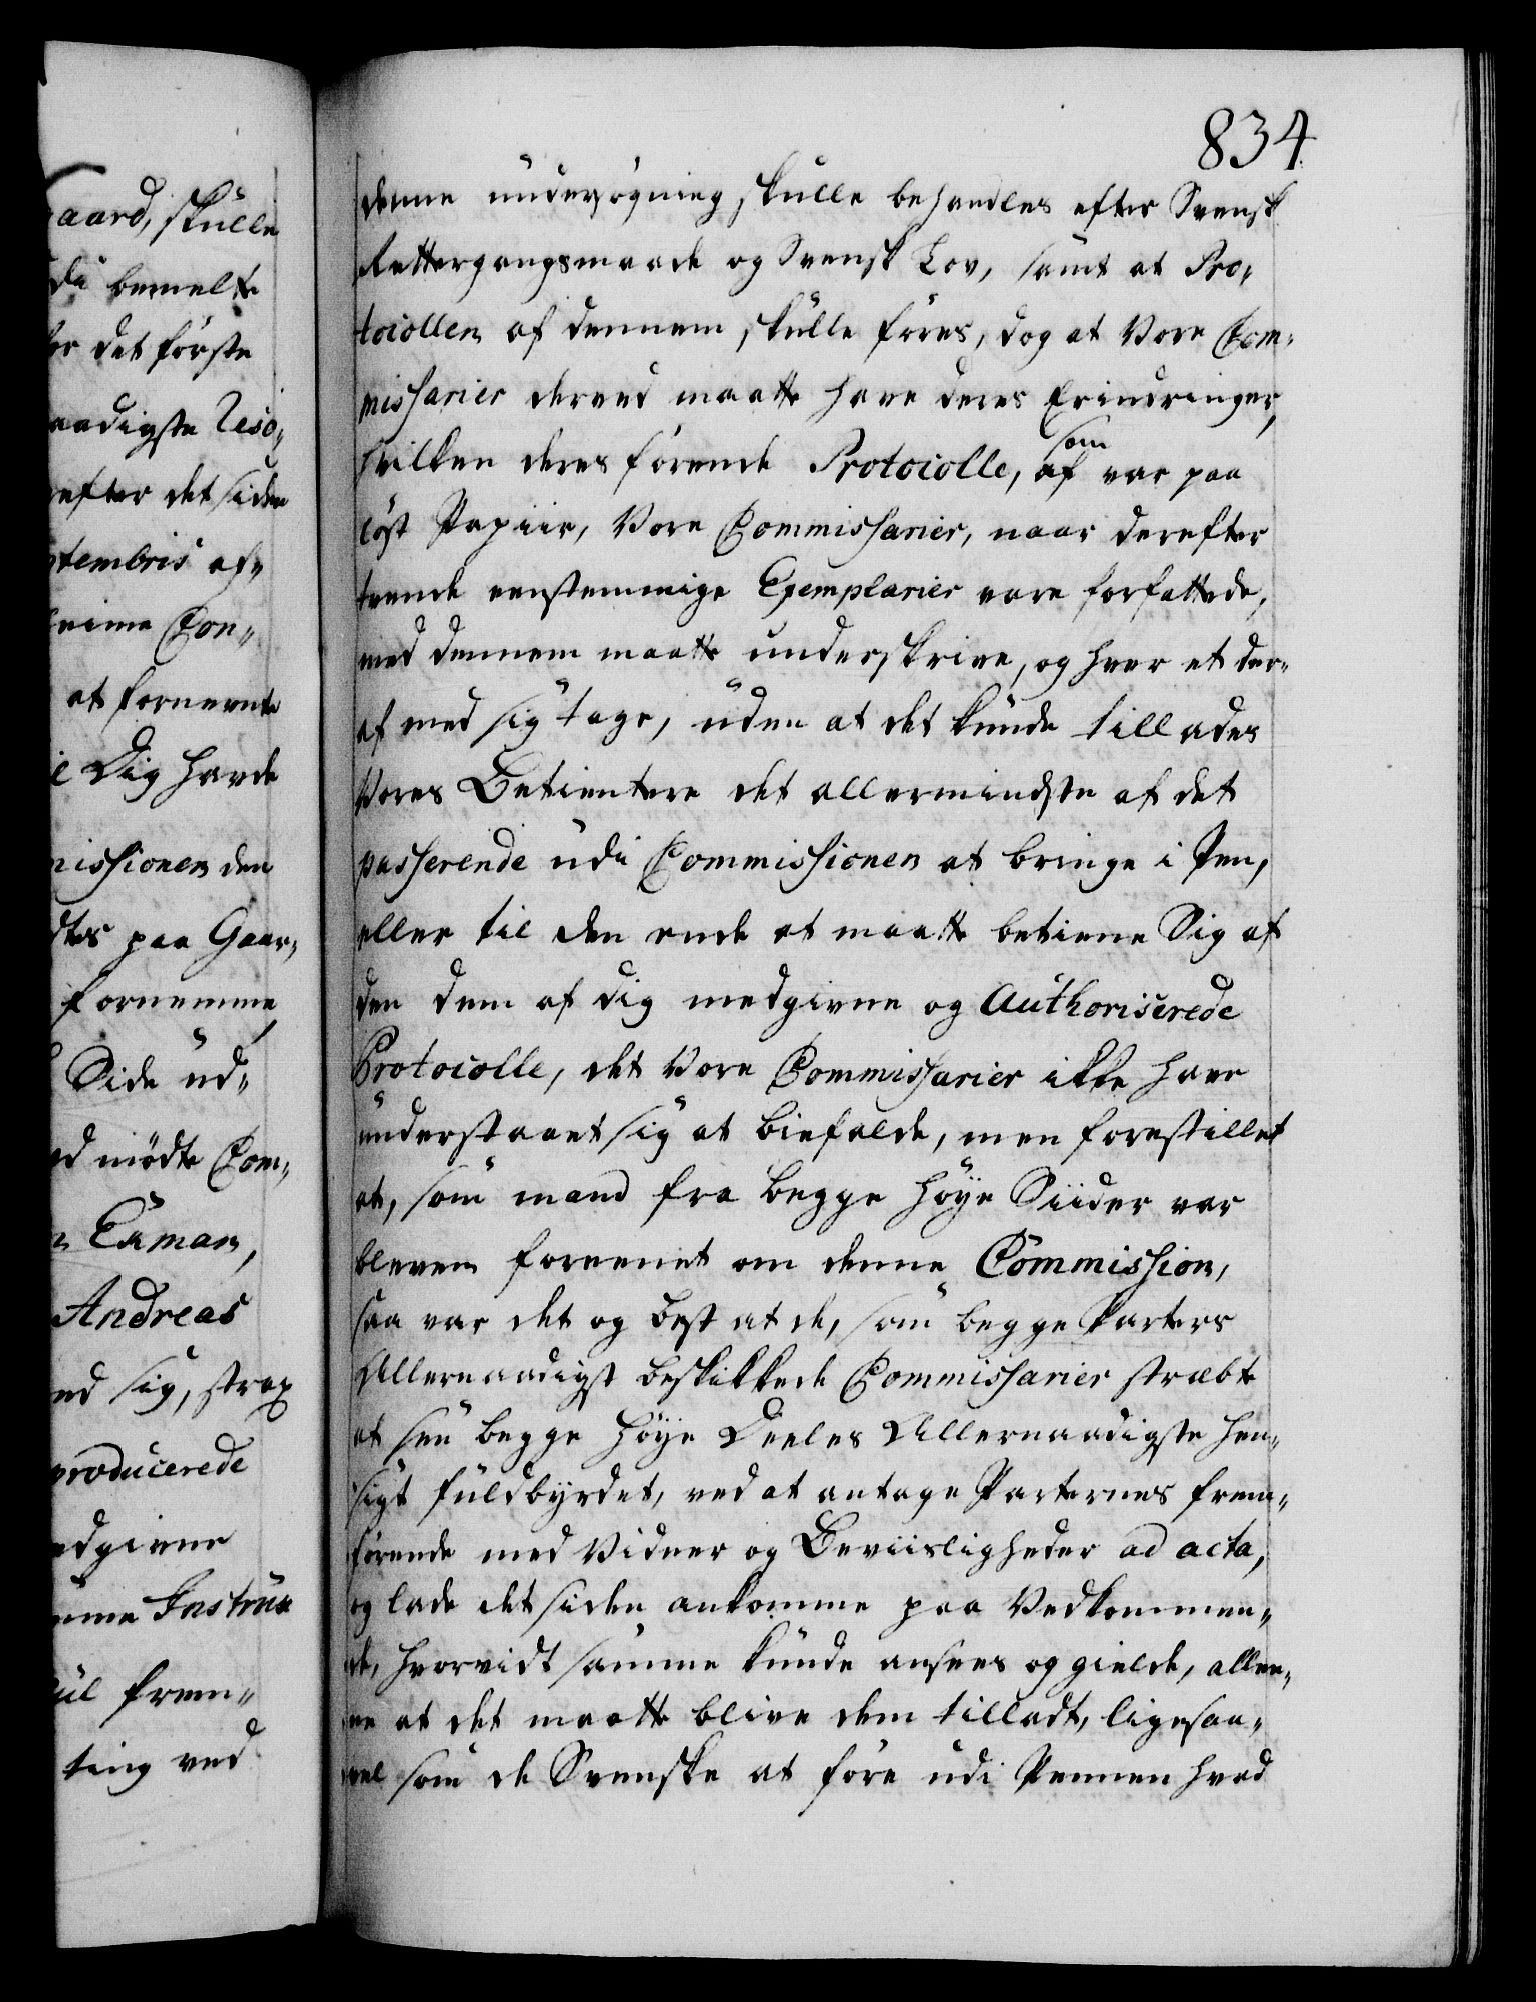 834
denne undersøgning skulle behandles efter Svensk
Rettergangsmaade og Svensk Lov, samt at Pro-
tocollen af dennem skulle føres, dog at Vore Com-
missarier derved maatte have deres Erindringer,
hvilken deres førende Protocolle, som
af var paa
løst Papiir, Vore Commissarier, naar derefter
tvende eenstemmige Exemplarier vare forfattede,
med dennem maatte underskrive, og hver et der-
af med sig tage, uden at det kunde tillades
Vores Betientere det allermindste af det
passerende udi Commissionen at bringe i Pen,
eller til den ende at maatte betiene Sig af
den dem af dig medgivne og Authoriserede
Protocolle, det Vore Commissarier ikke have
understaaet sig at biefalde, men forestillet
at, som mand fra begge høye Siider var
bleven foreenet om denne Commission,
saa var det og best at de, som begge Parters
Allernaadigst beskikkede Commissarier stræbte
at see begge høye Deeles Allernaadigste hen-
sigt fuldbyrdet, ved at antage Parternes frem-
førende med Vidner og Beviisligheder ad acta,
og lade det siden ankomme paa Vedkommen-
de, hvorvidt samme kunde ansees og gielde, alle-
ne at det maatte blive dem tilladt, ligesaa-
vel som de Svenske at føre udi Pennen hvad
aard, skulle
udi bemelte
det første
aadigste Reso-
efter det siden
ptembris af-
Con-
at fornevnte
Dig havde
missionen den
paa Gaar-
fornemme
Side ud-
mødte Com-
Eüman,
Andreas
sig, strax
producerede
edgivne
Instrux
frem-
ting ved